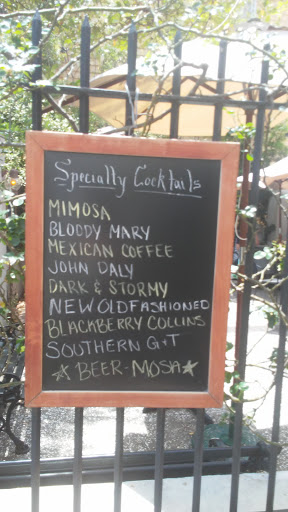 Specialty Cocktails
MIMOSA
BLOODY MARY
MEXICAN COFFEE
JOHN DALY
DARK & STORMY
NEW OLD FASHIONED
BLACKBERRY COLLINS
SOUTHERN G&T
☆ BEER-MOSA ☆